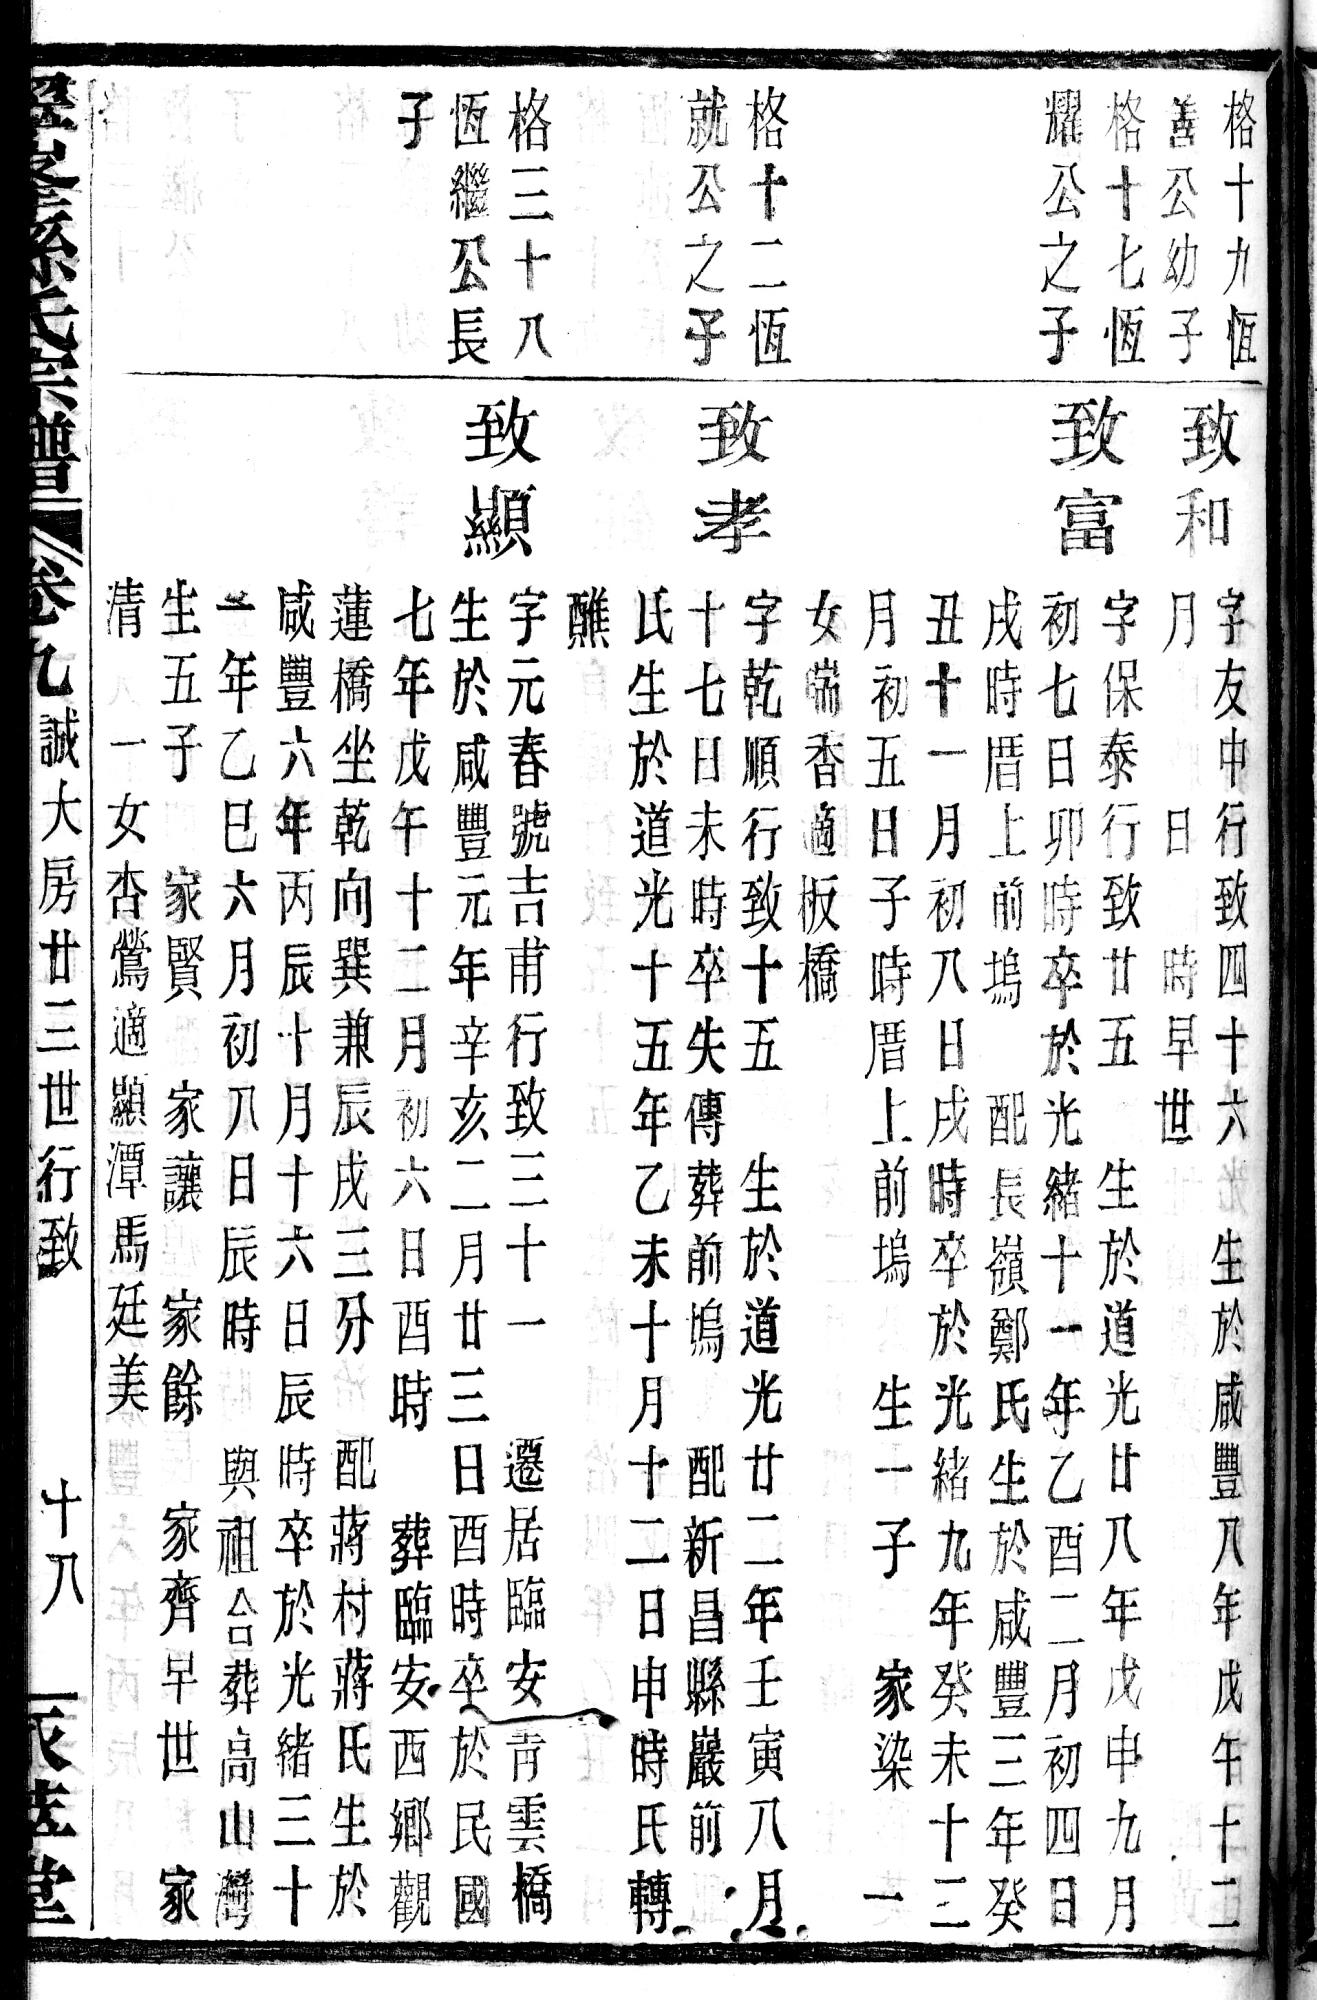 格十九恆
善公幼子
致和
字友中行致四十六　生於咸豐八年戊午十二
月　日　時早世
格十七恆
耀公之子
致富
字保泰行致廿五　生於道光廿八年戊申九月
初七日卯時卒於光緒十一年乙酉二月初四日
戌時厝上前塢　配長嶺鄭氏生於咸豐三年癸
丑十一月初八日戌時卒於光緒九年癸未十二
月初五日子時厝上前塢　生一子　家染　一
女喘香適板橋
格十二恆
就公之子
致孝
字乾順行致十五　生於道光廿二年壬寅八月
十七日未時卒失傳葬前塢　配新昌縣巖前
氏生於道光十五年乙未十月十二日申時氏轉
醮
格三十八
恆繼公長
子
致顯
字元春號吉甫行致三十一　遷居臨安青雲橋
生於咸豐元年辛亥二月廿三日酉時卒於民國
七年戊午十二月初六日酉時　葬臨安西鄉觀
蓮橋坐乾向巽兼辰戌三分　配蔣村蔣氏生於
咸豐六年丙辰十月十六日辰時卒於光緒三十
一年乙巳六月初八日辰時　與祖合葬高山灣
生五子　家賢　家讓　家餘　家齊早世　家
清　一女杏鶯適顯潭馬廷美
孫氏宗譜　卷九　誠大房廿三世行致　十八　堂